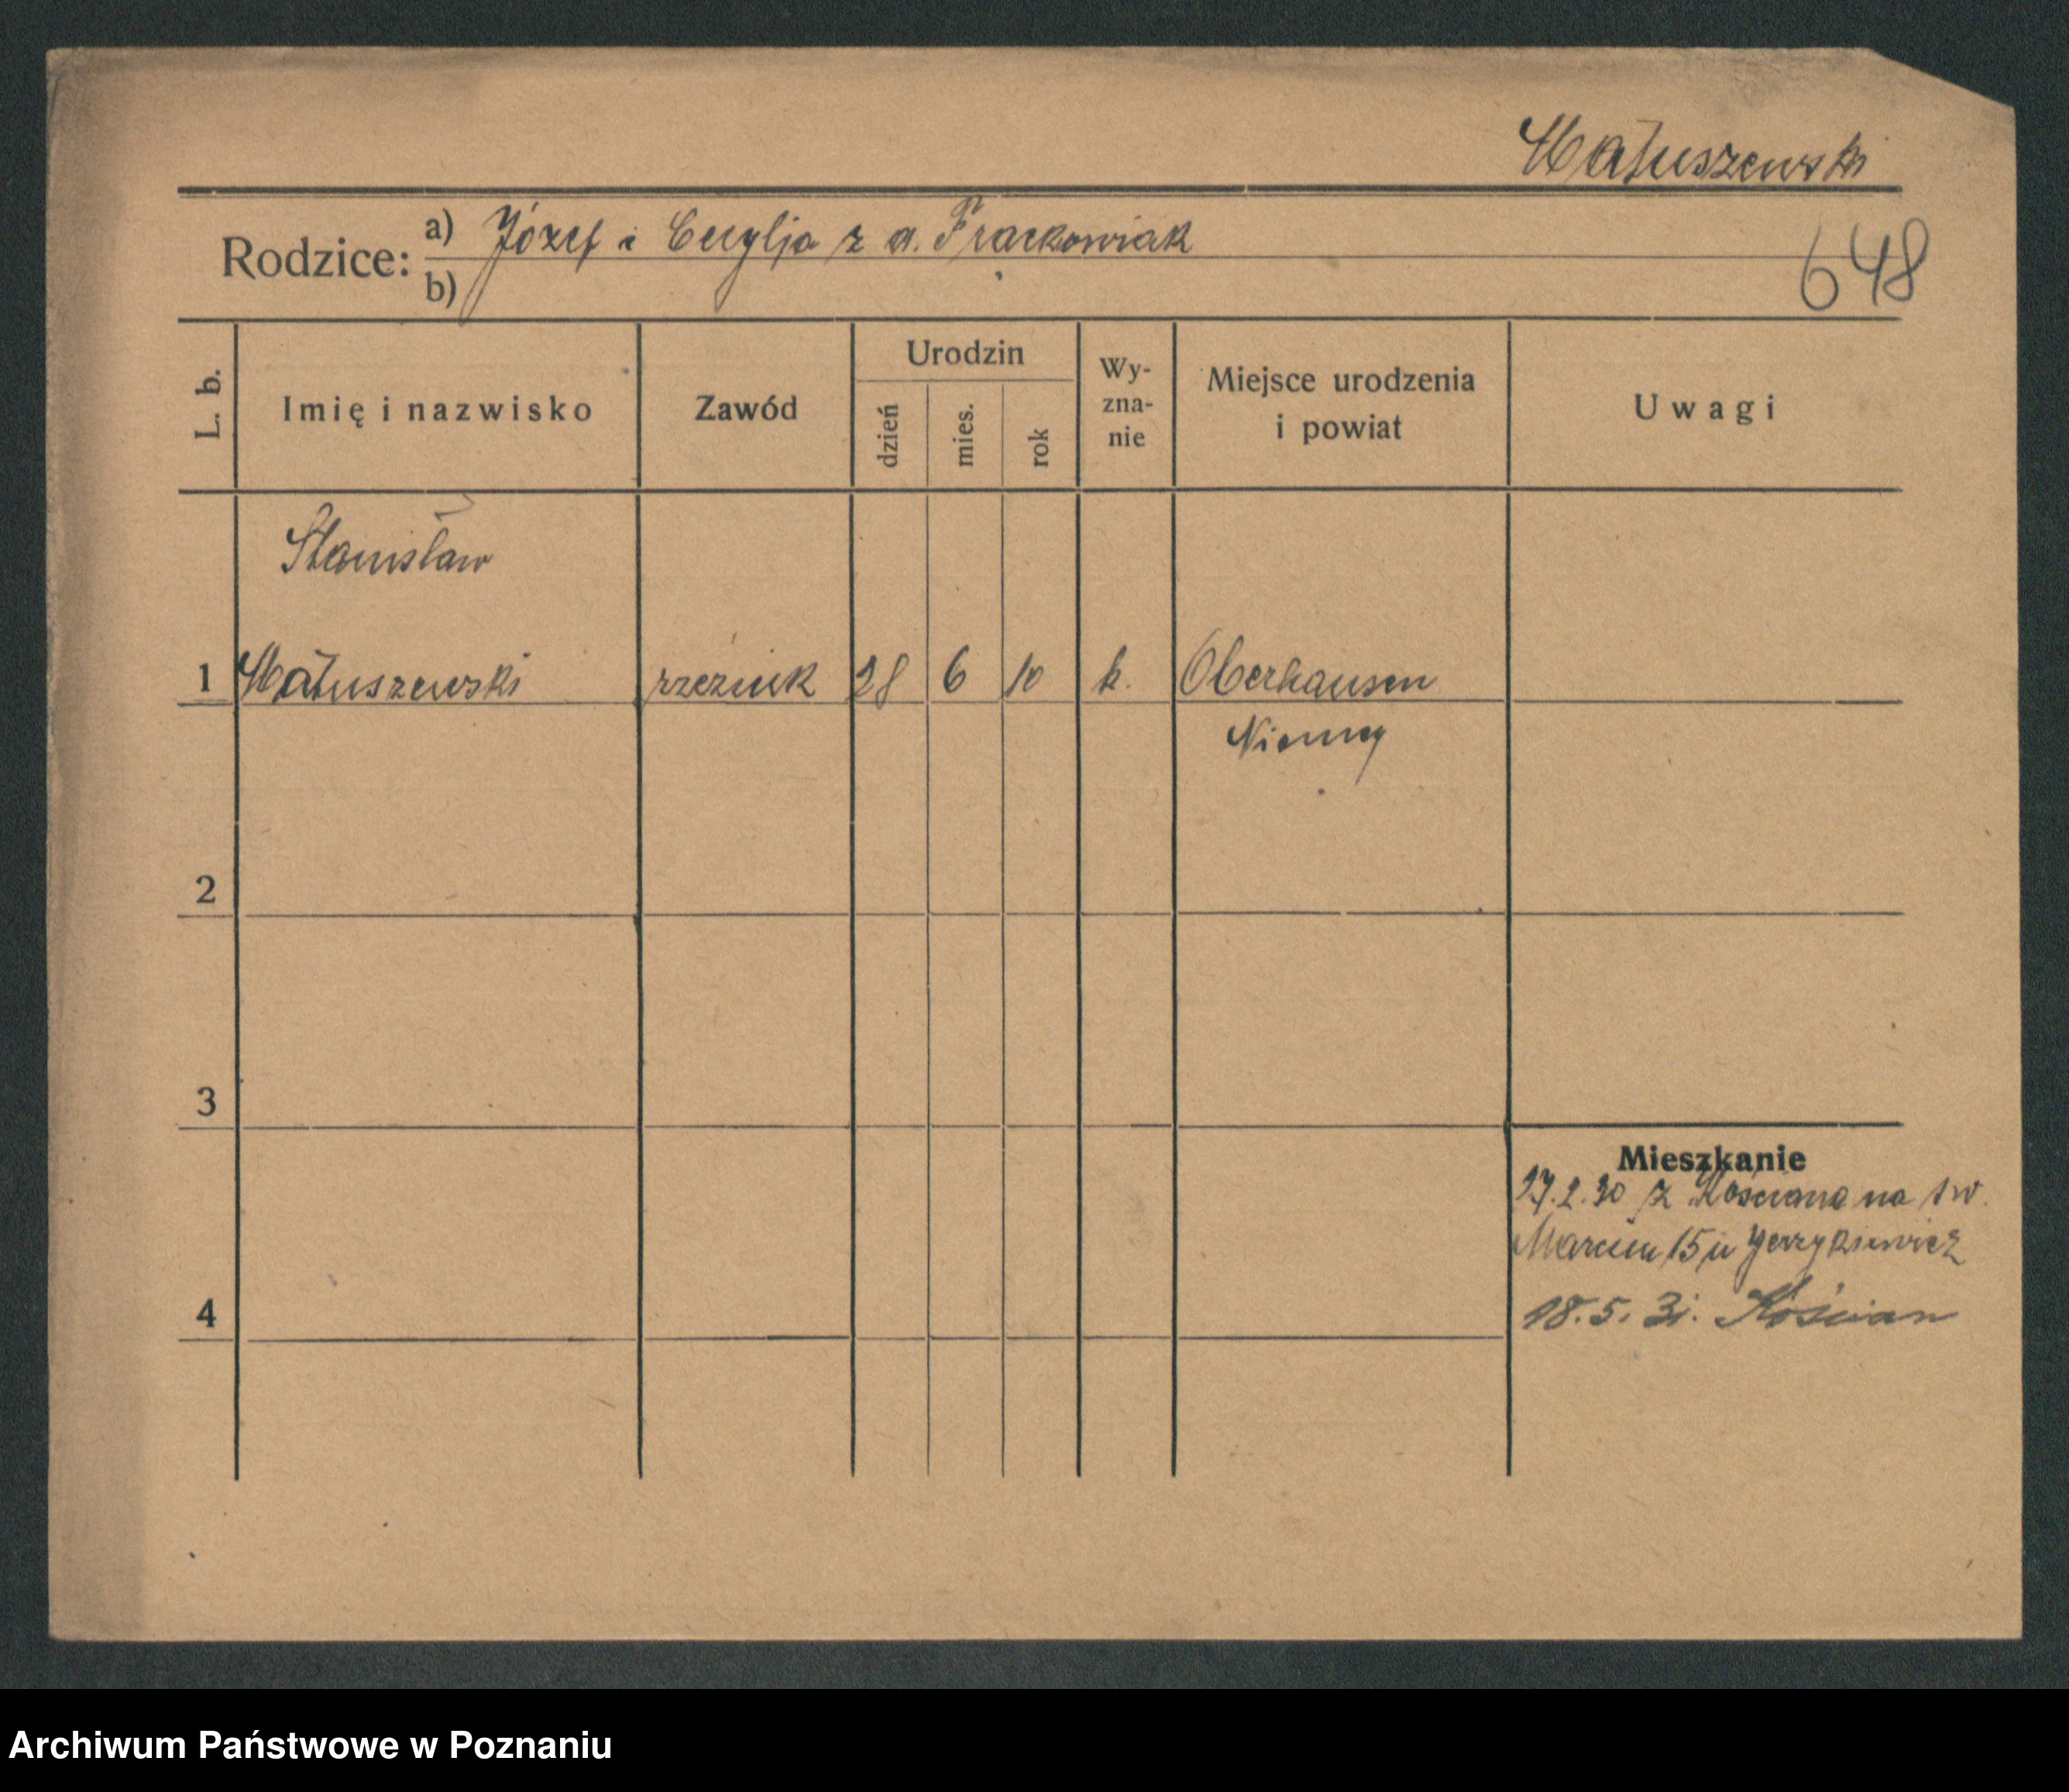 Matuszewski
Rodzice: a) Józef i Cecylja z d. Frackowiak
b)
648
L. b.
Imię i nazwisko
Zawód
Urodzin
dzień
mies.
rok
Wy-
zna-
nie
Miejsce urodzenia
i powiat
Uwagi
Stanisław
1 Matuszewski rzeźnik 28 6 10 k. Oberhausen
Niemcy
2
3
Mieszkanie
27.2.30 z Kościana na św.
Marcin 15 u Jerzykiewicz
4
18.5.31. Kościan
Archiwum Państwowe w Poznaniu